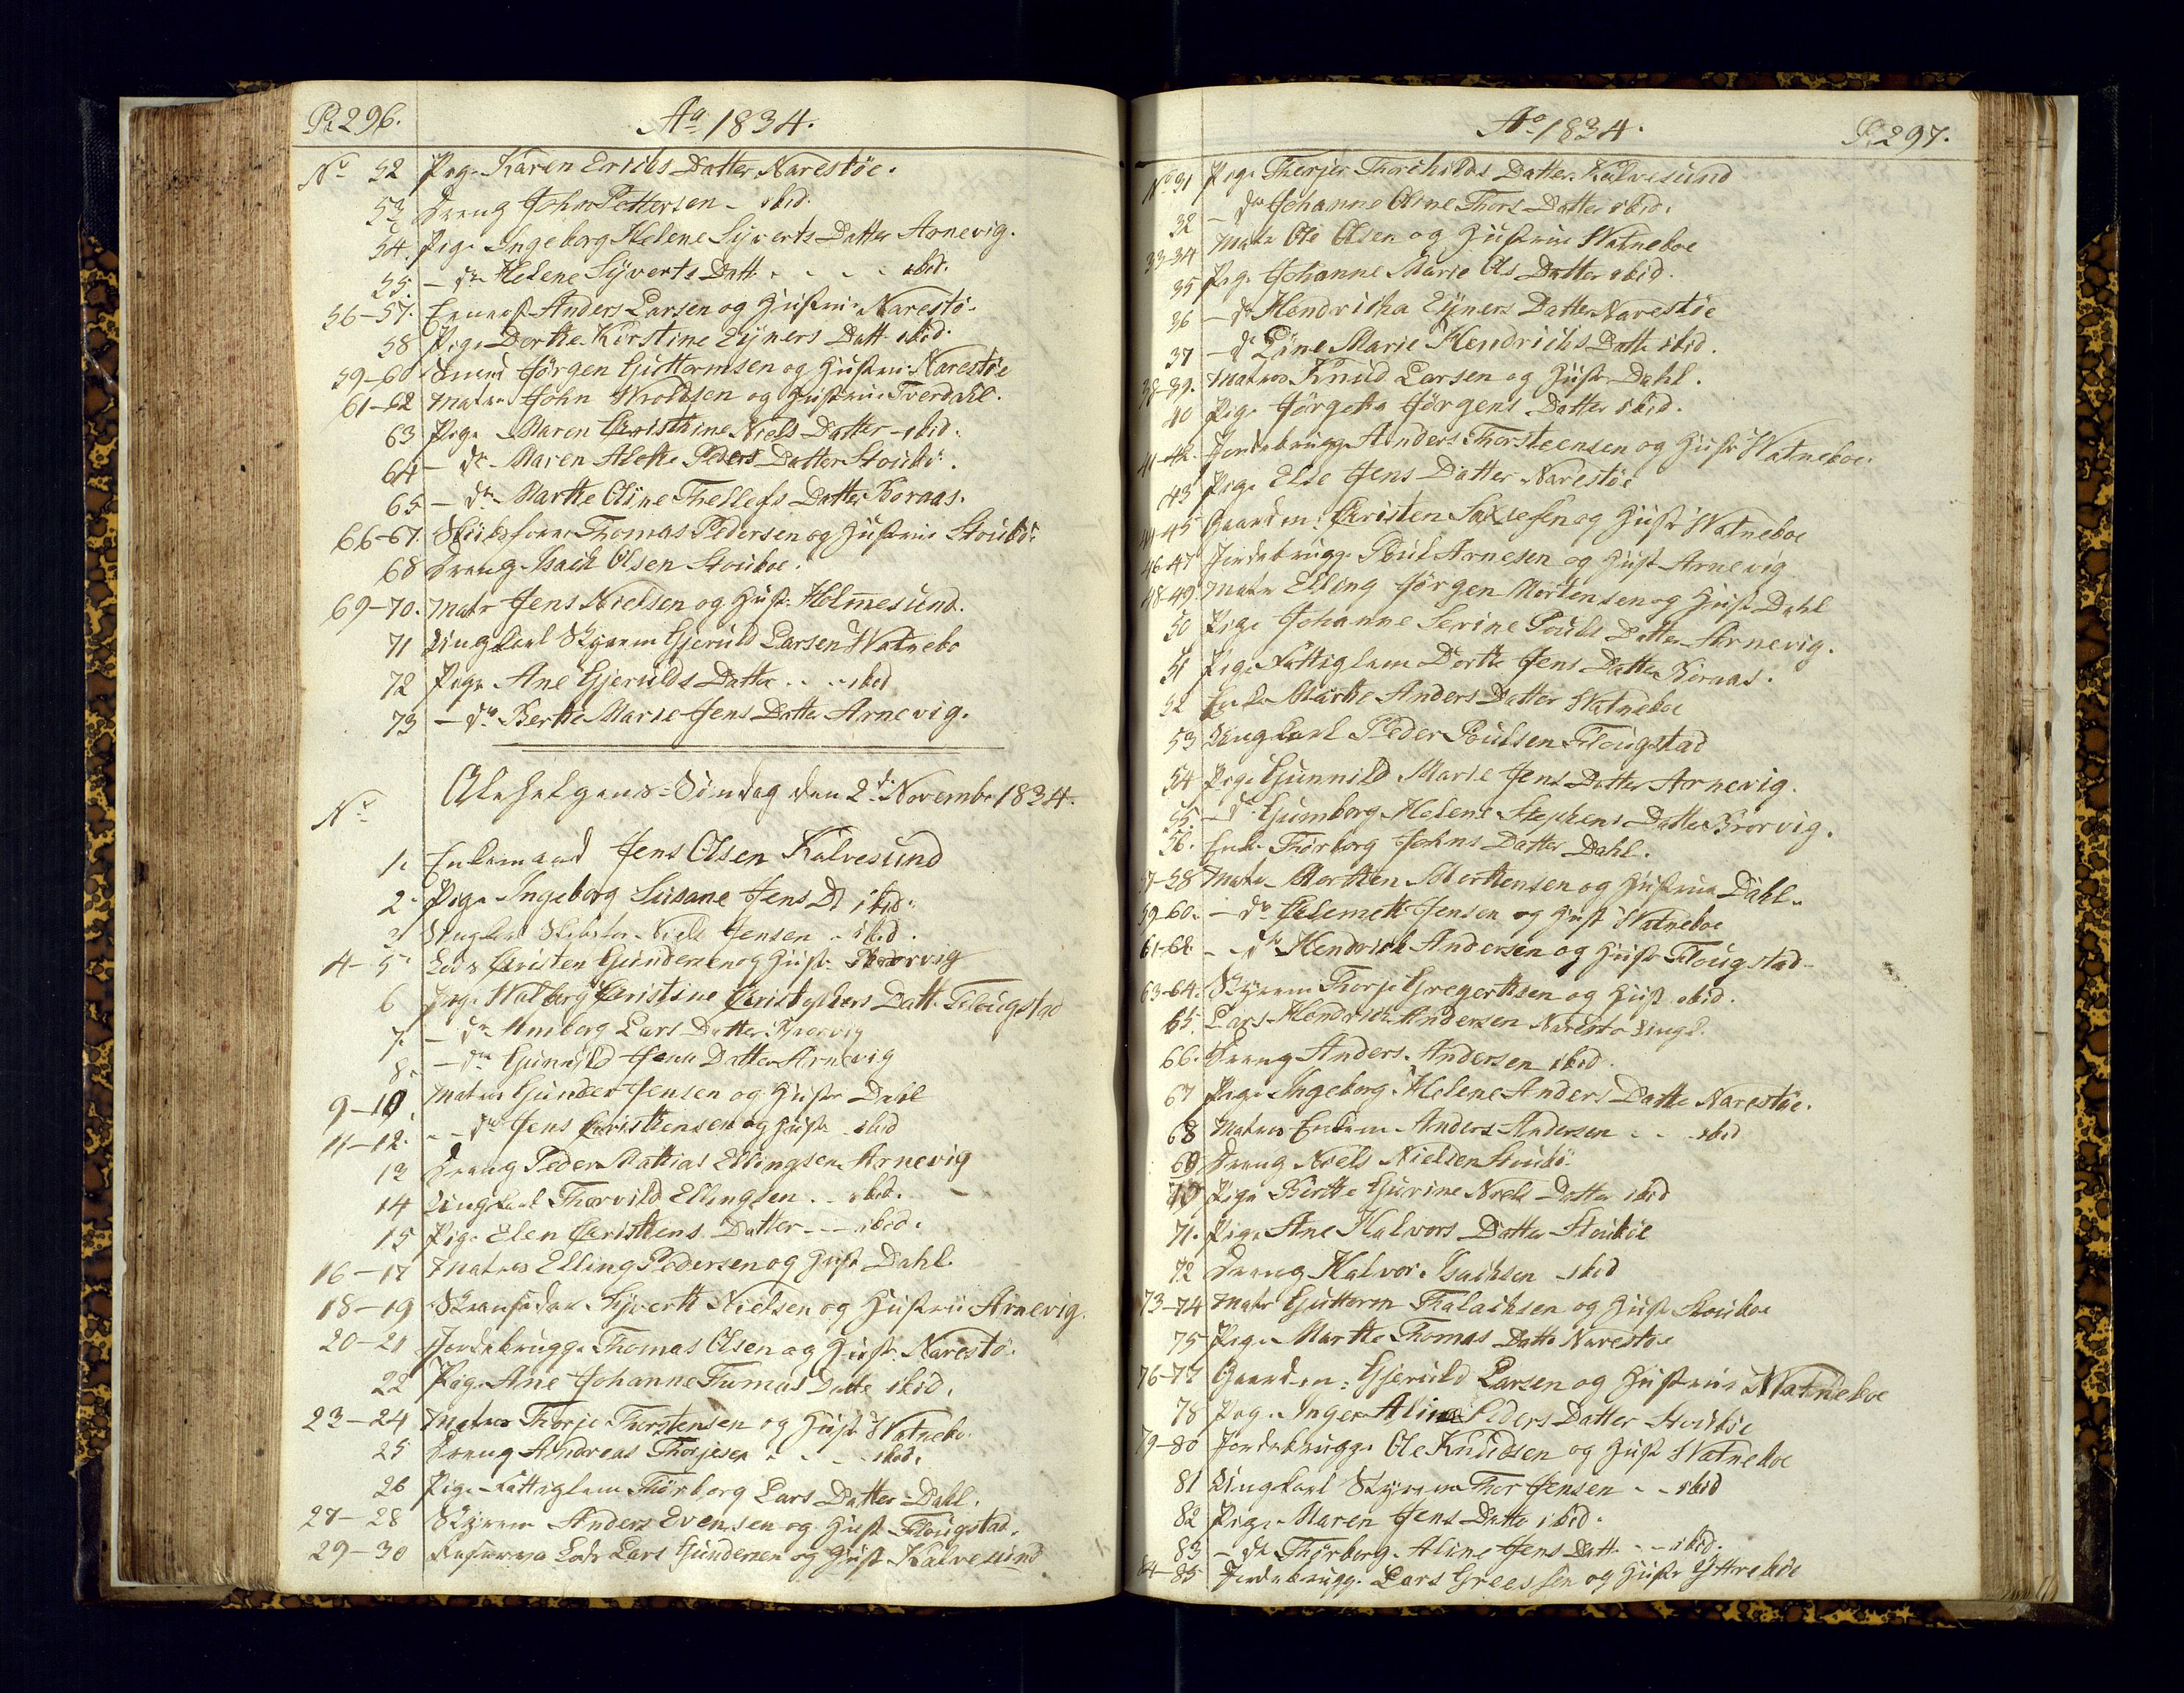 P. 296.
Aº 1834.
Nº 52 Pige Karen Erichs Datter Narestöe.
53 Dreng John Pettersen - ibid.
54. Pige Ingeborg Helene Syverts Datter Arnevig.
55. - do Helene Syverts Datt - - - - ibid.
56-57. Anders Larsen og Hustrue Narestö.
58 Pige Dorthe Kirstine Eyners Datt ibid.
59-60 Jörgen Guttormsen og Hustrue Narestöe
61-62 Matro. John Wroldsen og Hustrue Tverdahl.
63 Pige Maren Christhine Niels Datter - ibid.
64 - do Maren Alette Peders Datter Stoubö.
65 - do Marthe Oline Thellefs Datter Boraas.
66-67. Skibsförer Thomas Pedersen og Hustrue Stoubö.
68 Dreng Isach Olsen Stouboe.
69-70. Matr Jens Nielsen og Hust. Holmesund.
71 Ungkarl Styrm Gjeruld Larsen Watnebo
72 Pige Ane Gjerulds Datter - - - ibid
73 - do Berthe Marie Jens Datter Arnevig.
Alehelgens-Söndag den 2d. Novembr 1834.
Nº
1. Enkemand Jens Olsen Kalvesund
2. Pige Ingeborg Susane Jens D. ibid.
3 Niels Jensen - ibid.
4-5. Lods Christen Gundersen og Hust. Brorvig
6 Pige Walborg Christine Christophers Datt. Flougstad
7. - do Amborg Lars Datter Brorvig
8. - do Gunnild Jens Datter Arnevig
9-10 Matros Gunder Jensen og Hustr Dahl
11-12. - - do Jens Christhensen og Hustr ibid
13 Dreng Peder Mathias Ellingsen Arnevig
14 Ungkarl Thorvild Ellingsen - - ibid. -
15 Pige Elen Christhens Datter - - - ibid.
16-17 Matros Elling Pedersen og Hustr Dahl.
18-19 Syvertt Nielsen og Hustrue Arnevig.
20-21 Jordebrugge Thomas Olsen og Hustr. Narestö.
22 Pige Ane Johanne Tumas Datte ibid.
23-24 Matros Thorje Thorstensen og Hustr Watnebo.
25 Dreng Andreas Thorjesen - - - - ibid.
26 Pige Fattiglem Thörborg Lars Datter Dahl.
27-28 Styrm Anders Evensen og Hust Flougstad.
29-30 Lods Lars Gundersen og Hust Kalvesund
Aº 1834.
P. 297.
Nº 31 Pige Therjer Thorchilds Datter Kalvesund
32 - do Johanne Oline Thors Datter ibid.
33-34 Matr Ole Olsen og Hustrue Watneboe
35 Pige Johanne Marie Ols Datter ibid.
36 - do Hendricha Eyners Datter Narestöe
37 - do Line Marie Hendrichs Datte ibid.
38-39. Matros Knud Larsen og Hustr Dahl.
40 Pige Jörgette Jörgens Datter ibid.
41-42 Jordebrugge Anders Thorsteensen og Hustr Watneboe.
43 Pige Else Jens Datter Narestöe
44-45 Gaardm: Christen Saxlesen og Hustr Watneboe
46-47 Jordebrugge Poul Arnesen og Hust Arnevig
48-49 Matr Elling Jörgen Mortensen og Hust Dahl
50 Pige Johanne Serine Pouls Datter Arnevig.
51 Pige Fattiglem Dorthe Jens Datter Boraas.
52 Enke Marthe Anders Datter Watneboe
53 Ungkarl Peder Poulsen Flougstad
54 Pige Gunnild Marie Jens Datter Arnevig.
55 - do Gumborg Helene Stephens Datter Brorvig.
56. Enke Thorborg Johns Datter Dahl.
57-58 Matr. Morthen Morthensen og Hustrue Dahl.
59-60. - do Clemett Jensen og Hust Watneboe
61-62 - do Hendrich Andersen og Hustr Flougstad
63-64. Styrm Thorje Gregerthsen og Hust ibid.
65. Lars Hendrich Andersen Narestö Ungk.
66. Dreng Anders Andersen ibid.
67 Pige Ingeborg Helene Anders Datte Narestöe.
68 Matros Enkem. Anders Andersen - - ibid
69 Dreng Niels Nielsen Stoubö.
70 Pige Birthe Gurine Niels Datter ibid
71. Pige Ane Halvors Datter Stouböe
72 Dreng Halvor Isachsen ibid
73-74 Matr Guttorm Thalachsen og Hustr Stouboe
75 Pige Marthe Thomas Datte Narestöe
76-77 Gaardm: Gjeruld Larsen og Hustrue Watneboe
78 Pige Inger Aline Peders Datter Stouböe
79-80 Jordebrugge Ole Knudsen og Hust Watneboe
81 Ungkarl Styrm Thor Jensen - - ibid
82 Pige Maren Jens Datte ibid.
83 - do Thörborg Aline Jens Datt. - - ibid.
84-85 Jordebrugg. Lars Greessen og Hustr Yttreböe